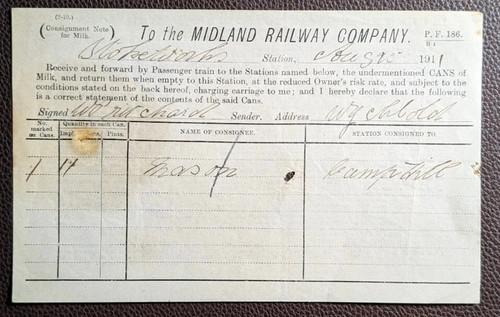 (2-10.)
(Consignment Note for Milk.) To the MIDLAND RAILWAY COMPANY. P. F. 186.
Stoke Works Station, Aug 5 1911
Receive and forward by Passenger train to the Stations named below, the undermentioned CANS of
Milk, and return them when empty to this Station, at the reduced Owner's risk rate, and subject to the
conditions stated on the back hereof, charging carriage to me; and I hereby declare that the following
is a correct statement of the contents of the said Cans.
Signed Sender. Address Wychbold
No. marked on Cans. Quantity in each Can. NAME OF CONSIGNEE. STATION CONSIGNED TO.
Impl. Pints.
1 17 Mason Camp Hill